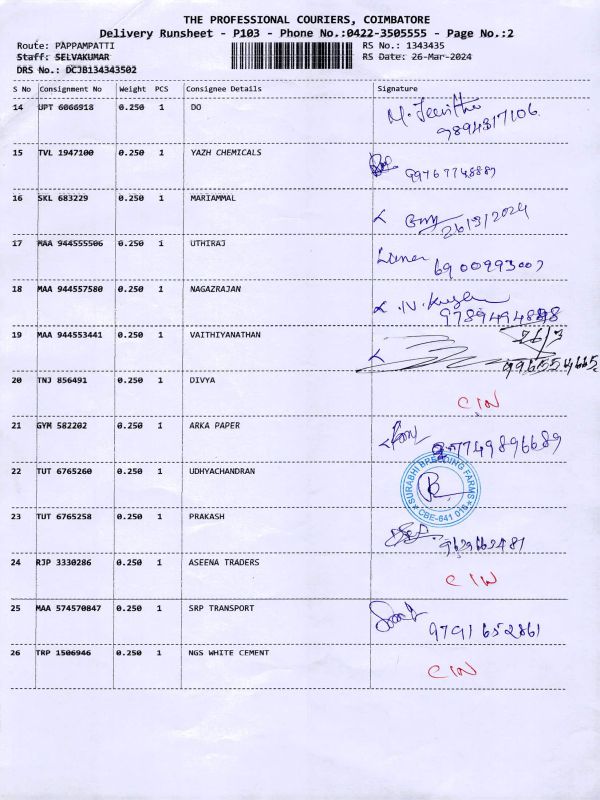 THE PROFESSIONAL COURIERS, COIMBATORE
Delivery Runsheet - P103 - Phone No.:0422-3505555 - Page No.:2
Route: PAPPAMPATTI RS No.: 1343435
Staff: SELVAKUMAR RS Date: 26-Mar-2024
DRS No.: DCJB134343502
S No Consignment No Weight PCS Consignee Details Signature
14 UPT 6066918 0.250 1 DO
9894317106
15 TVL 1947100 0.250 1 YAZH CHEMICALS
16 SKL 683229 0.250 1 MARIAMMAL
26/3/2024
17 MAA 944555506 0.250 1 UTHIRAJ
18 MAA 944557580 0.250 1 NAGAZRAJAN
19 MAA 944553441 0.250 1 VAITHIYANATHAN
26/3
20 TNJ 856491 0.250 1 DIVYA
CIN
21 GYM 582202 0.250 1 ARKA PAPER
22 TUT 6765260 0.250 1 UDHYACHANDRAN
SURABHI BREEDING FARMS
CBE-641 016
23 TUT 6765258 0.250 1 PRAKASH
24 RJP 3330286 0.250 1 ASEENA TRADERS
CIN
25 MAA 574570847 0.250 1 SRP TRANSPORT
9791652861
26 TRP 1506946 0.250 1 NGS WHITE CEMENT
CIN